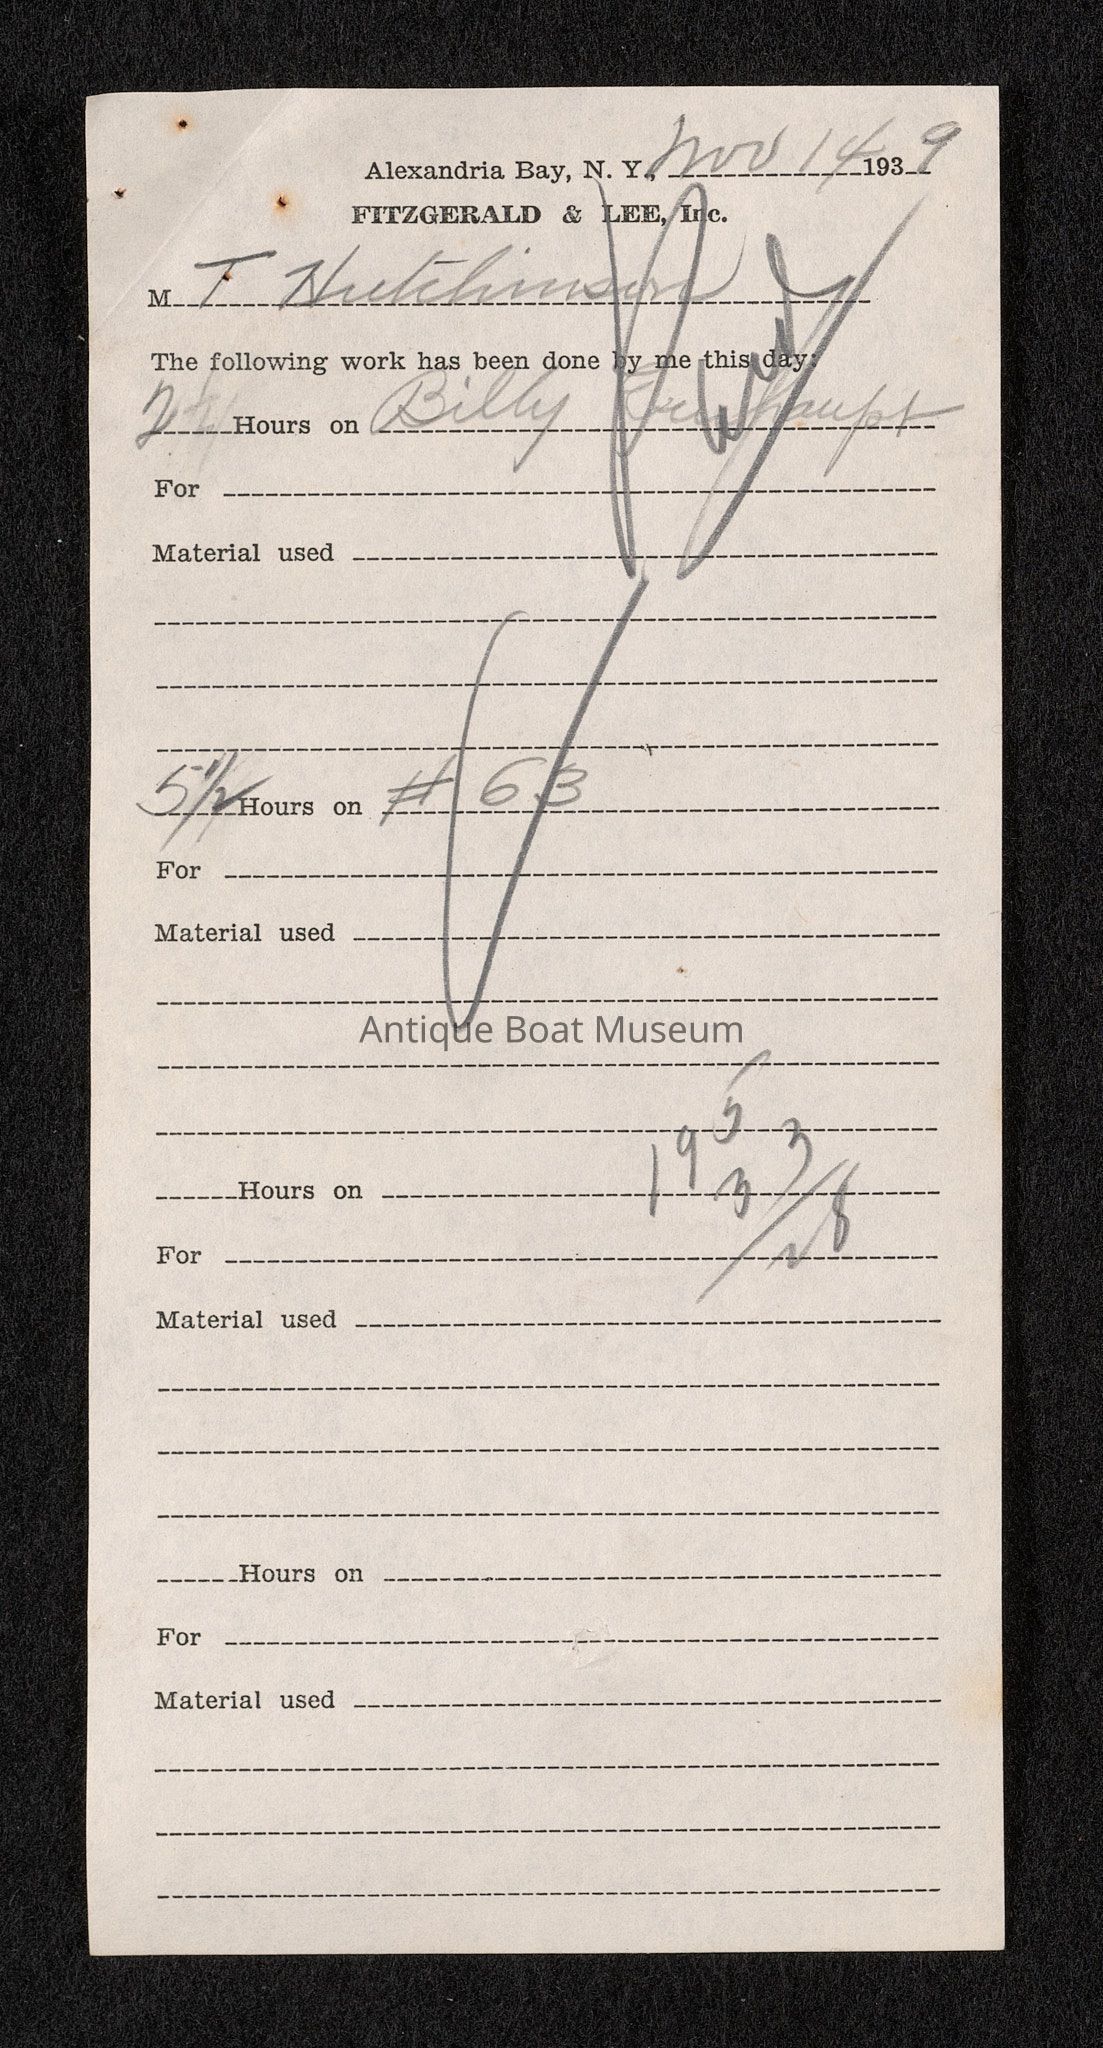 Alexandria Bay, N. Y., Nov 14 1939
FITZGERALD & LEE, Inc.
M T Hutchinson
The following work has been done by me this day:
Hours on Billy
For
Material used
5 1/2 Hours on # 63
For
Material used
Antique Boat Museum
Hours on
For
Material used
Hours on
For
Material used